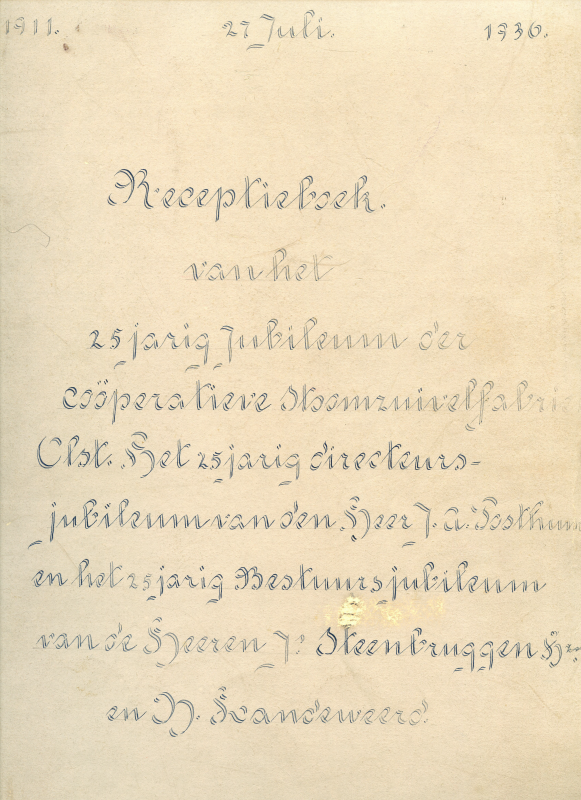 1911. 27 Juli. 1936.
Receptieboek.
van het
25 jarig Jubileum der
coöperatieve Stoomzuivelfabrie
Elst. Het 25 jarig directeurs-
jubileum van den Heer J. A. Posthum
en het 25 jarig Bestuursjubileum
van de Heeren J. Steenbruggen Hzn
en H.